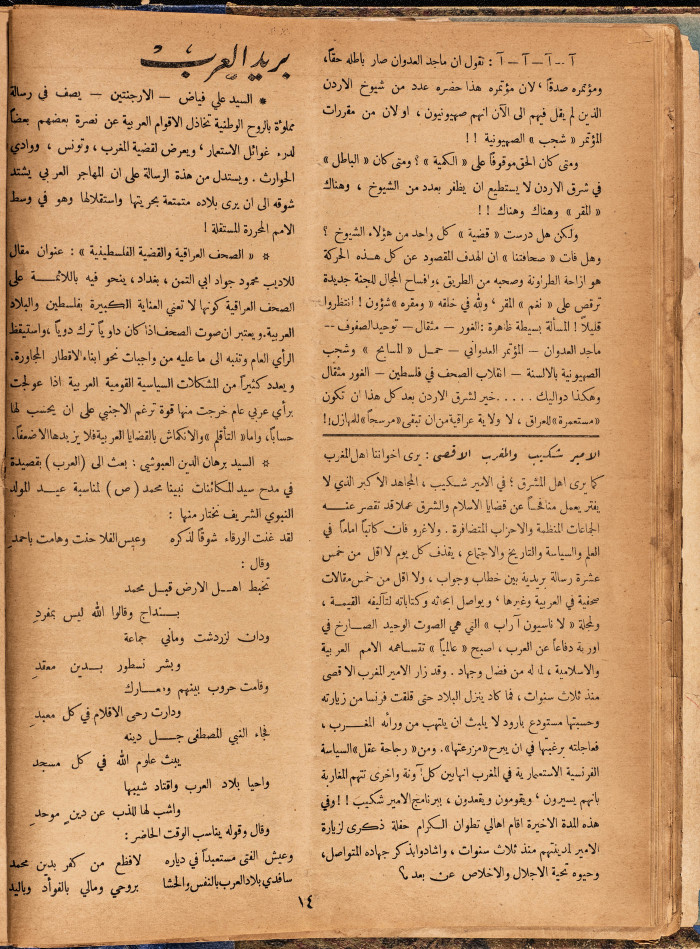 آ -- آ -- آ -- آ : تقول ان ماجد العدوان صار باطله حقاً،
ومؤتمره صدقاً، لان مؤتمره هذا حضره عدد من شيوخ الاردن
الذين لم يقل فيهم الى الآن انهم صهيونيون، او لان من مقررات
المؤتمر « شجب » الصهيونية !!
ومتى كان الحق موقوفاً على « الكمية » ؟ ومتى كان « الباطل »
في شرق الاردن لا يستطيع ان يظفر بعدد من الشيوخ ، وهناك
« المقر » وهناك وهناك !!
ولكن هل درست « قضية » كل واحد من هؤلاء الشيوخ ؟
وهل فات « صحافتنا » ان الهدف المقصود عن كل هذه الحركة
هو ازاحة الطراونة وصحبه من الطريق، وافساح المجال للجنة جديدة
ترقص على « نغم » المقر ، ولله في خلقه « ومقره » شؤون ! انتظروا
قليلاً ! المسألة بسيطة ظاهرة : الغور – مثقال – توحيد الصفوف –
ماجد العدوان – المؤتمر العدواني – حمل « المسابح » وشجب
الصهيونية بالالسنة – انقلاب الصحف في فلسطين – الغور مثقال
وهكذا دواليك ..... خير لشرق الاردن بعد كل هذا ان تكون
«مستعمرة» للعراق ، لا ولاية عراقية من ان تبقى «مرسحاً» للمهازل!!
الامير شكيب والمغرب الاقصى : يرى اخواننا اهل المغرب
كما يرى اهل المشرق ؛ في الامير شكيب ، المجاهد الاكبر الذي لا
يفتر يعمل منافحاً عن قضايا الاسلام والشرق عملا قد تقصر عنه
الجماعات المنظمة والاحزاب المتضافرة . ولا غرو فان كاتباً اماماً في
العلم والسياسة والتاريخ والاجتماع ، يقذف كل يوم لا اقل من خمس
عشرة رسالة بريدية بين خطاب وجواب ، ولا اقل من خمس مقالات
صحفية في العربية وغيرها ، ويواصل ابحاثه وكتاباته لتآليفه القيمة ،
ولمجلة « لا ناسيون آراب » التي هي الصوت الوحيد الصارخ في
اوربة دفاعاً عن العرب ، اصبح « عالمياً » تتساهمه الامم العربية
والاسلامية ، لما له من فضل وجهاد . وقد زار الامير المغرب الاقصى
منذ ثلاث سنوات ، فما كاد ينزل البلاد حتى قلقت فرنسا من زيارته
وحسبتها مستودع بارود لا يلبث ان يلتهب من ورائه المغرب ،
فعاجلته برغبتها في ان يبرح «مزرعتها». ومن «رجاحة عقل» السياسة
الفرنسية الاستعمارية في المغرب انها بين كل آونة واخرى تتهم المغاربة
بانهم يسيرون ، ويقومون ويقعدون ، ببرنامج الامير شكيب !! وفي
هذه المدة الاخيرة اقام اهالي تطوان الكرام حفلة ذكرى لزيارة
الامير لمدينتهم منذ ثلاث سنوات ، واشادوا بذكر جهاده المتواصل،
وحيوه تحية الاجلال والاخلاص عن بعد م؟
بريد العرب
* السيد علي فياض – الارجنتين – يصف في رسالة
مملوءة بالروح الوطنية تخاذل الاقوام العربية عن نصرة بعضهم بعضاً
لدرء غوائل الاستعمار، ويعرض لقضية المغرب ، وتونس ، ووادي
الحوارث . ويستدل من هذة الرسالة على ان المهاجر العربي يشتد
شوقه الى ان يرى بلاده متمتعة بحريتها واستقلالها وهو في وسط
الامم المحررة المستقلة !
* « الصحف العراقية والقضية الفلسطينية » : عنوان مقال
للاديب محمود جواد ابي التمن ، بغداد ، ينحو فيه باللائمة على
الصحف العراقية كونها لا تعني العناية الكبيرة بفلسطين والبلاد
العربية. ويعتبر ان صوت الصحف اذا كان داوياً ترك دوياً، واستيقظ
الرأي العام وتنبه الى ما عليه من واجبات نحو ابناء الاقطار المجاورة.
ويعدد كثيراً من المشكلات السياسية القومية العربية اذا عولجت
برأي عربي عام خرجت منها قوة ترغم الاجنبي على ان يحسب لها
حساباً، واما « التأقلم » والانكماش بالقضايا العربية فلا يزيدها الا ضعفاً.
* السيد برهان الدين العبوشي : بعث الى (العرب) بقصيدة
في مدح سيد المكائنات نبينا محمد (ص) لمناسبة عيد المولد
النبوي الشريف نختار منها :
لقد غنت الورقاء شوقاً لذكره وعيس الفلا حنت وهامت باحمد
وقال :
تخبط اهل الارض قبل محمد
بتداج وقالوا الله ليس بمفرد
ودان لزردشت وماني جماعة
وبشر نسطور بدين معقد
وقامت حروب بينهم ومعارك
ودارت رحى الاقلام في كل معبد
فجاء النبي المصطفى جل دينه
يبث علوم الله في كل مسجد
واحيا بلاد العرب واقتاد شيبها
واشب لها للذب عن دين موحد
وقال وقوله يناسب الوقت الحاضر :
وعيش الفتى مستعبداً في دياره لافظع من كفر بدين محمد
سافدي بلاد العرب بالنفس والحشا بروحي ومالي بالفوآد وباليد
١٤